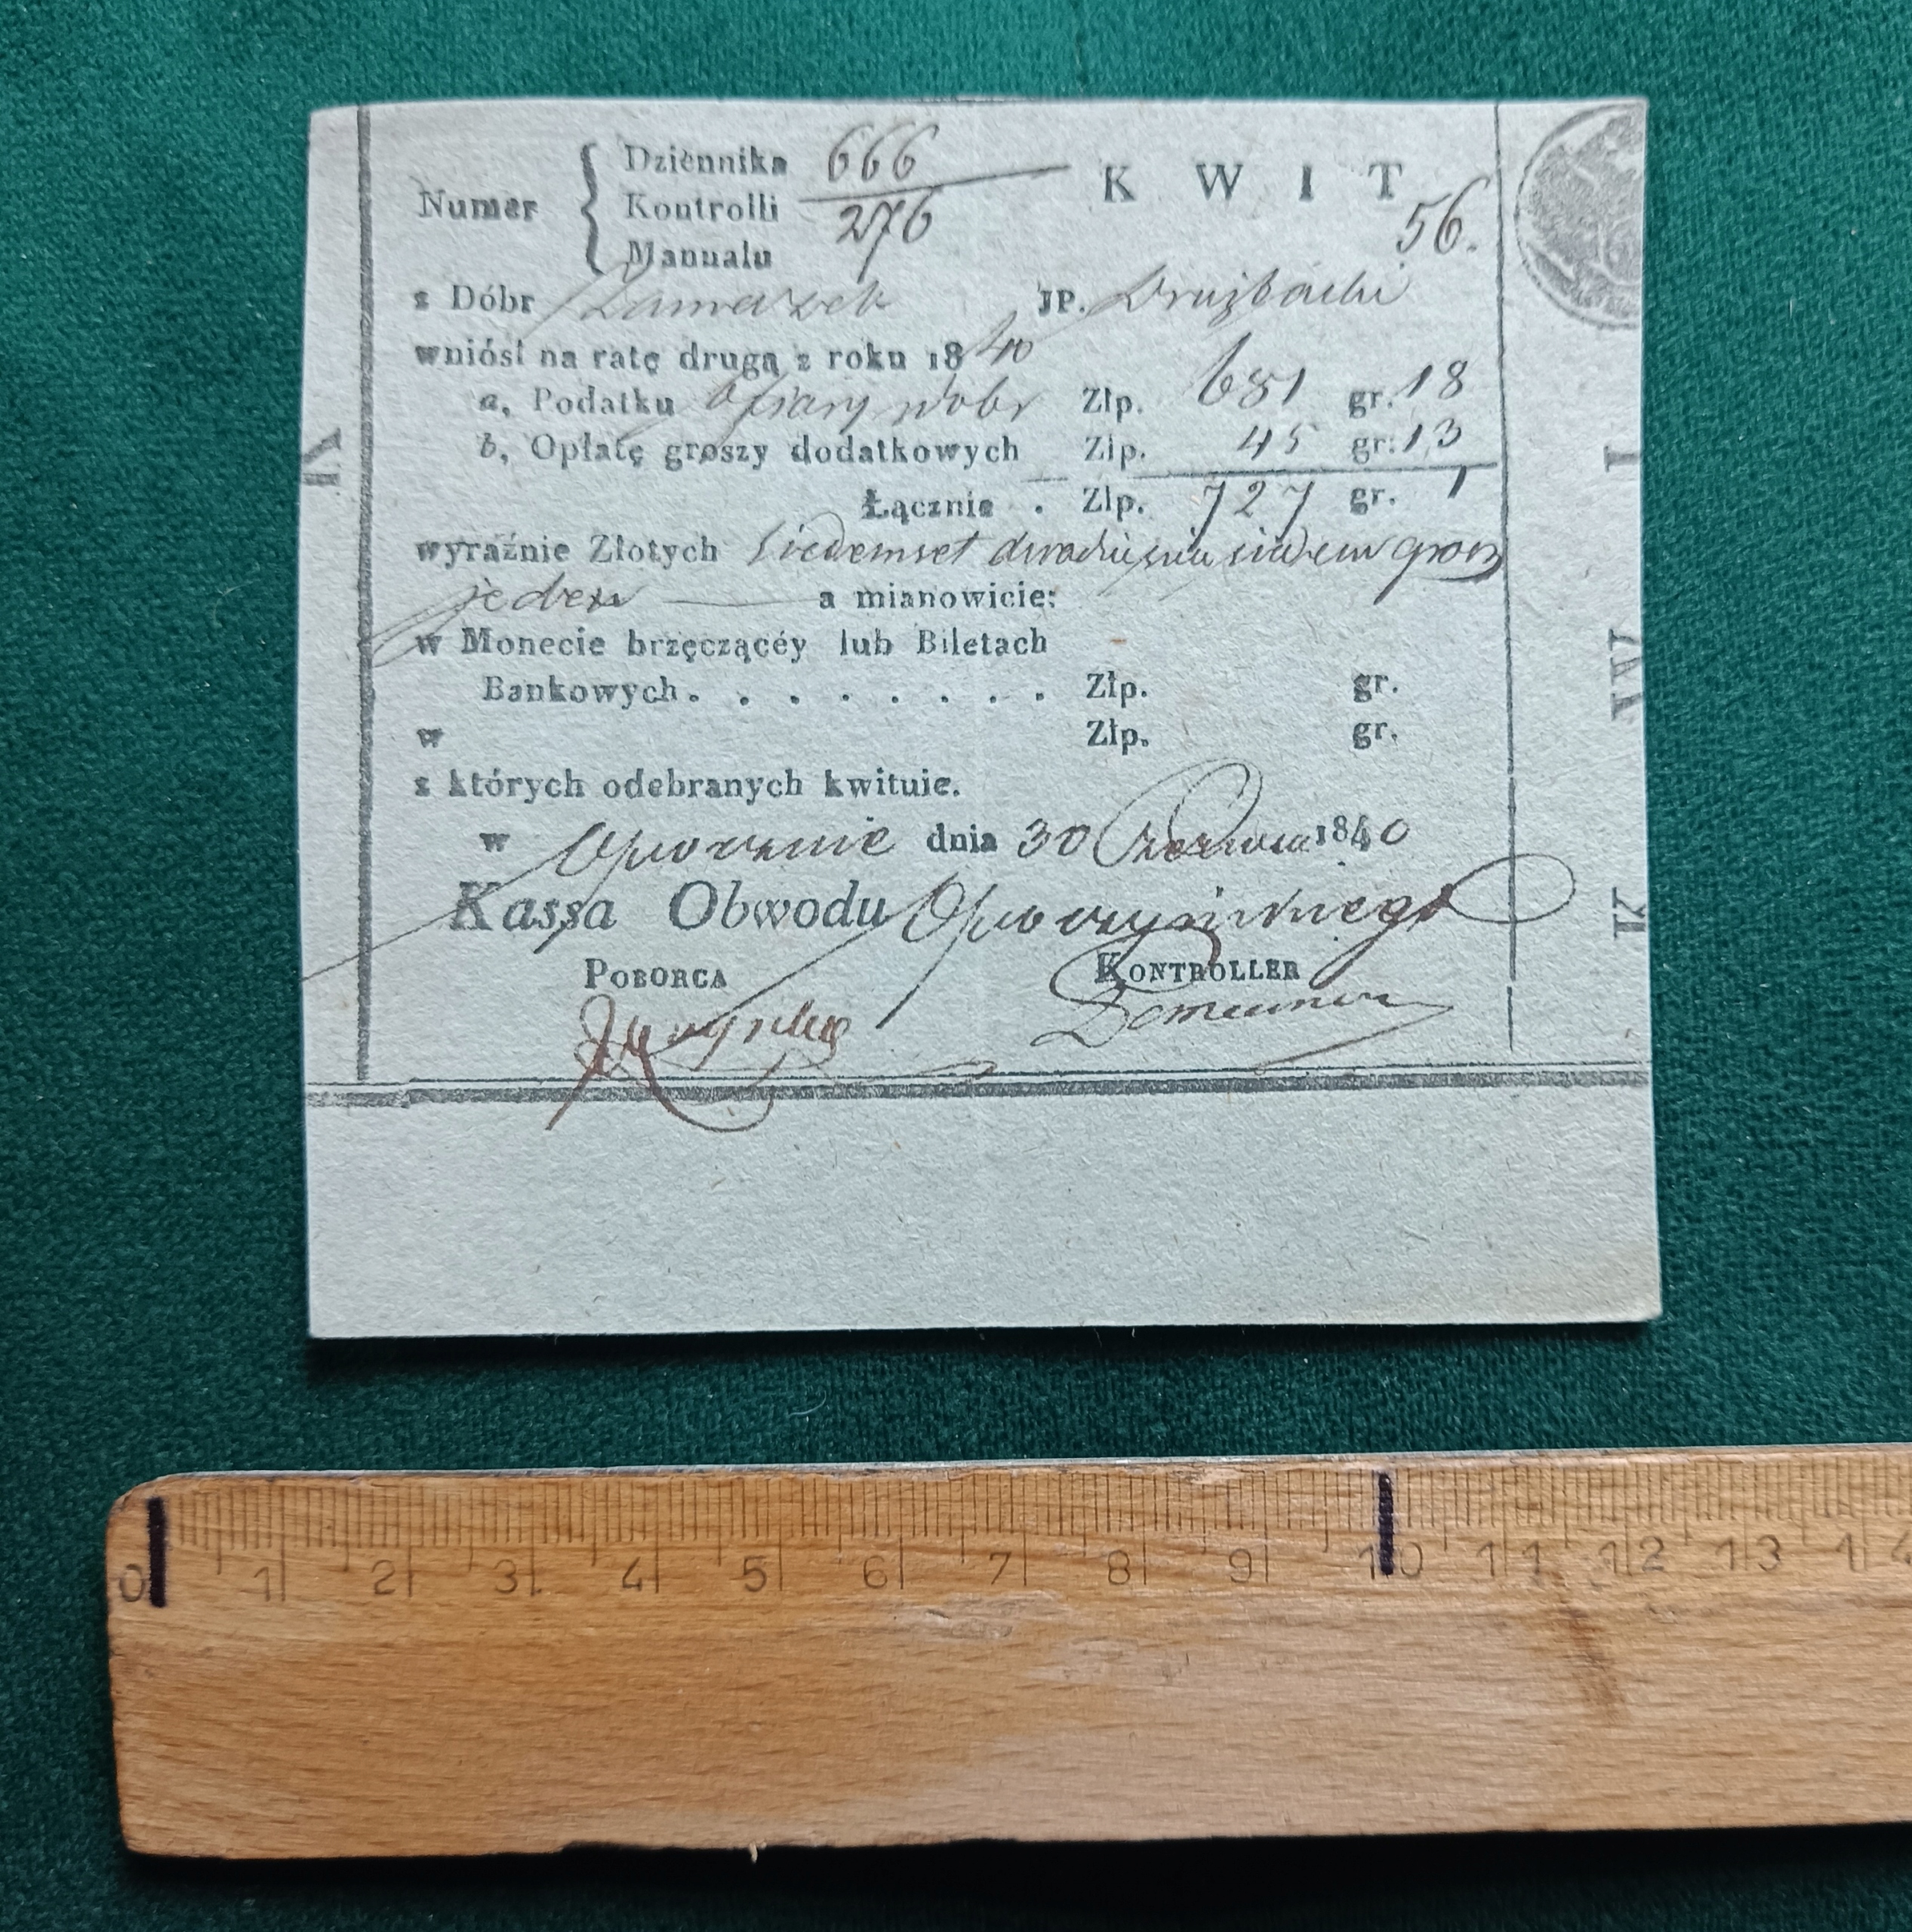 Numer { Dziennika 666 K W I T
Kontrolli 276 56.
Manualu
z Dóbr JP. Drużbacki
wniósł na ratę drugą z roku 1840
a, Podatku ofiary z dobr Złp. 681 gr. 18
b, Opłatę groszy dodatkowych Złp. 45 gr. 13
Łącznie . Złp. 727 gr. 1
wyraźnie Złotych siedemset dwadzieścia siedem grosz
jeden a mianowicie:
w Monecie brzęczącéy lub Biletach
Bankowych . . . . . . . . Złp. gr.
w Złp. gr.
z których odebranych kwituie.
w Opocznie dnia 30 Czerwca 1840
Kassa Obwodu Opoczyńskiego
POBORCA KONTROLLER
K W I
0 1 2 3 4 5 6 7 8 9 10 11 12 13 14